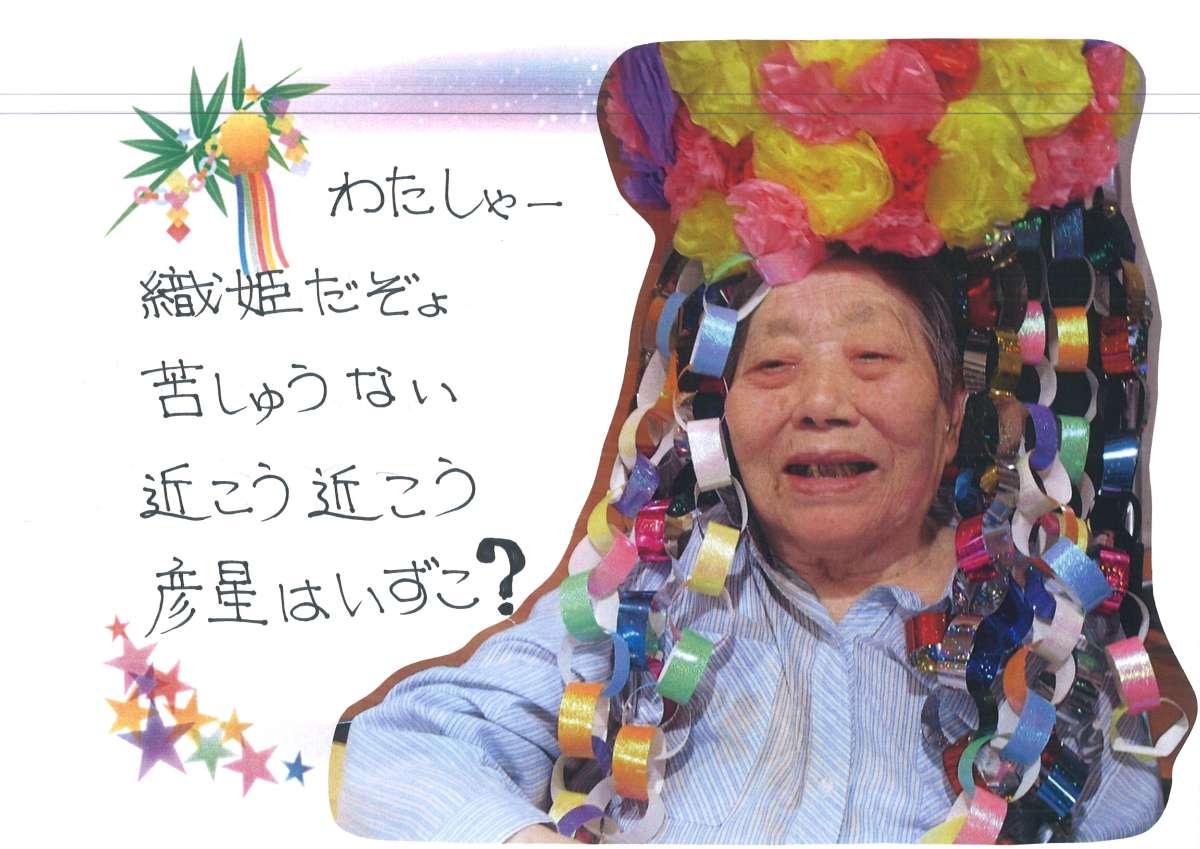 わたしゃー
織姫だぞょ
苦しゅうない
近こう近こう
彦星はいずこ?